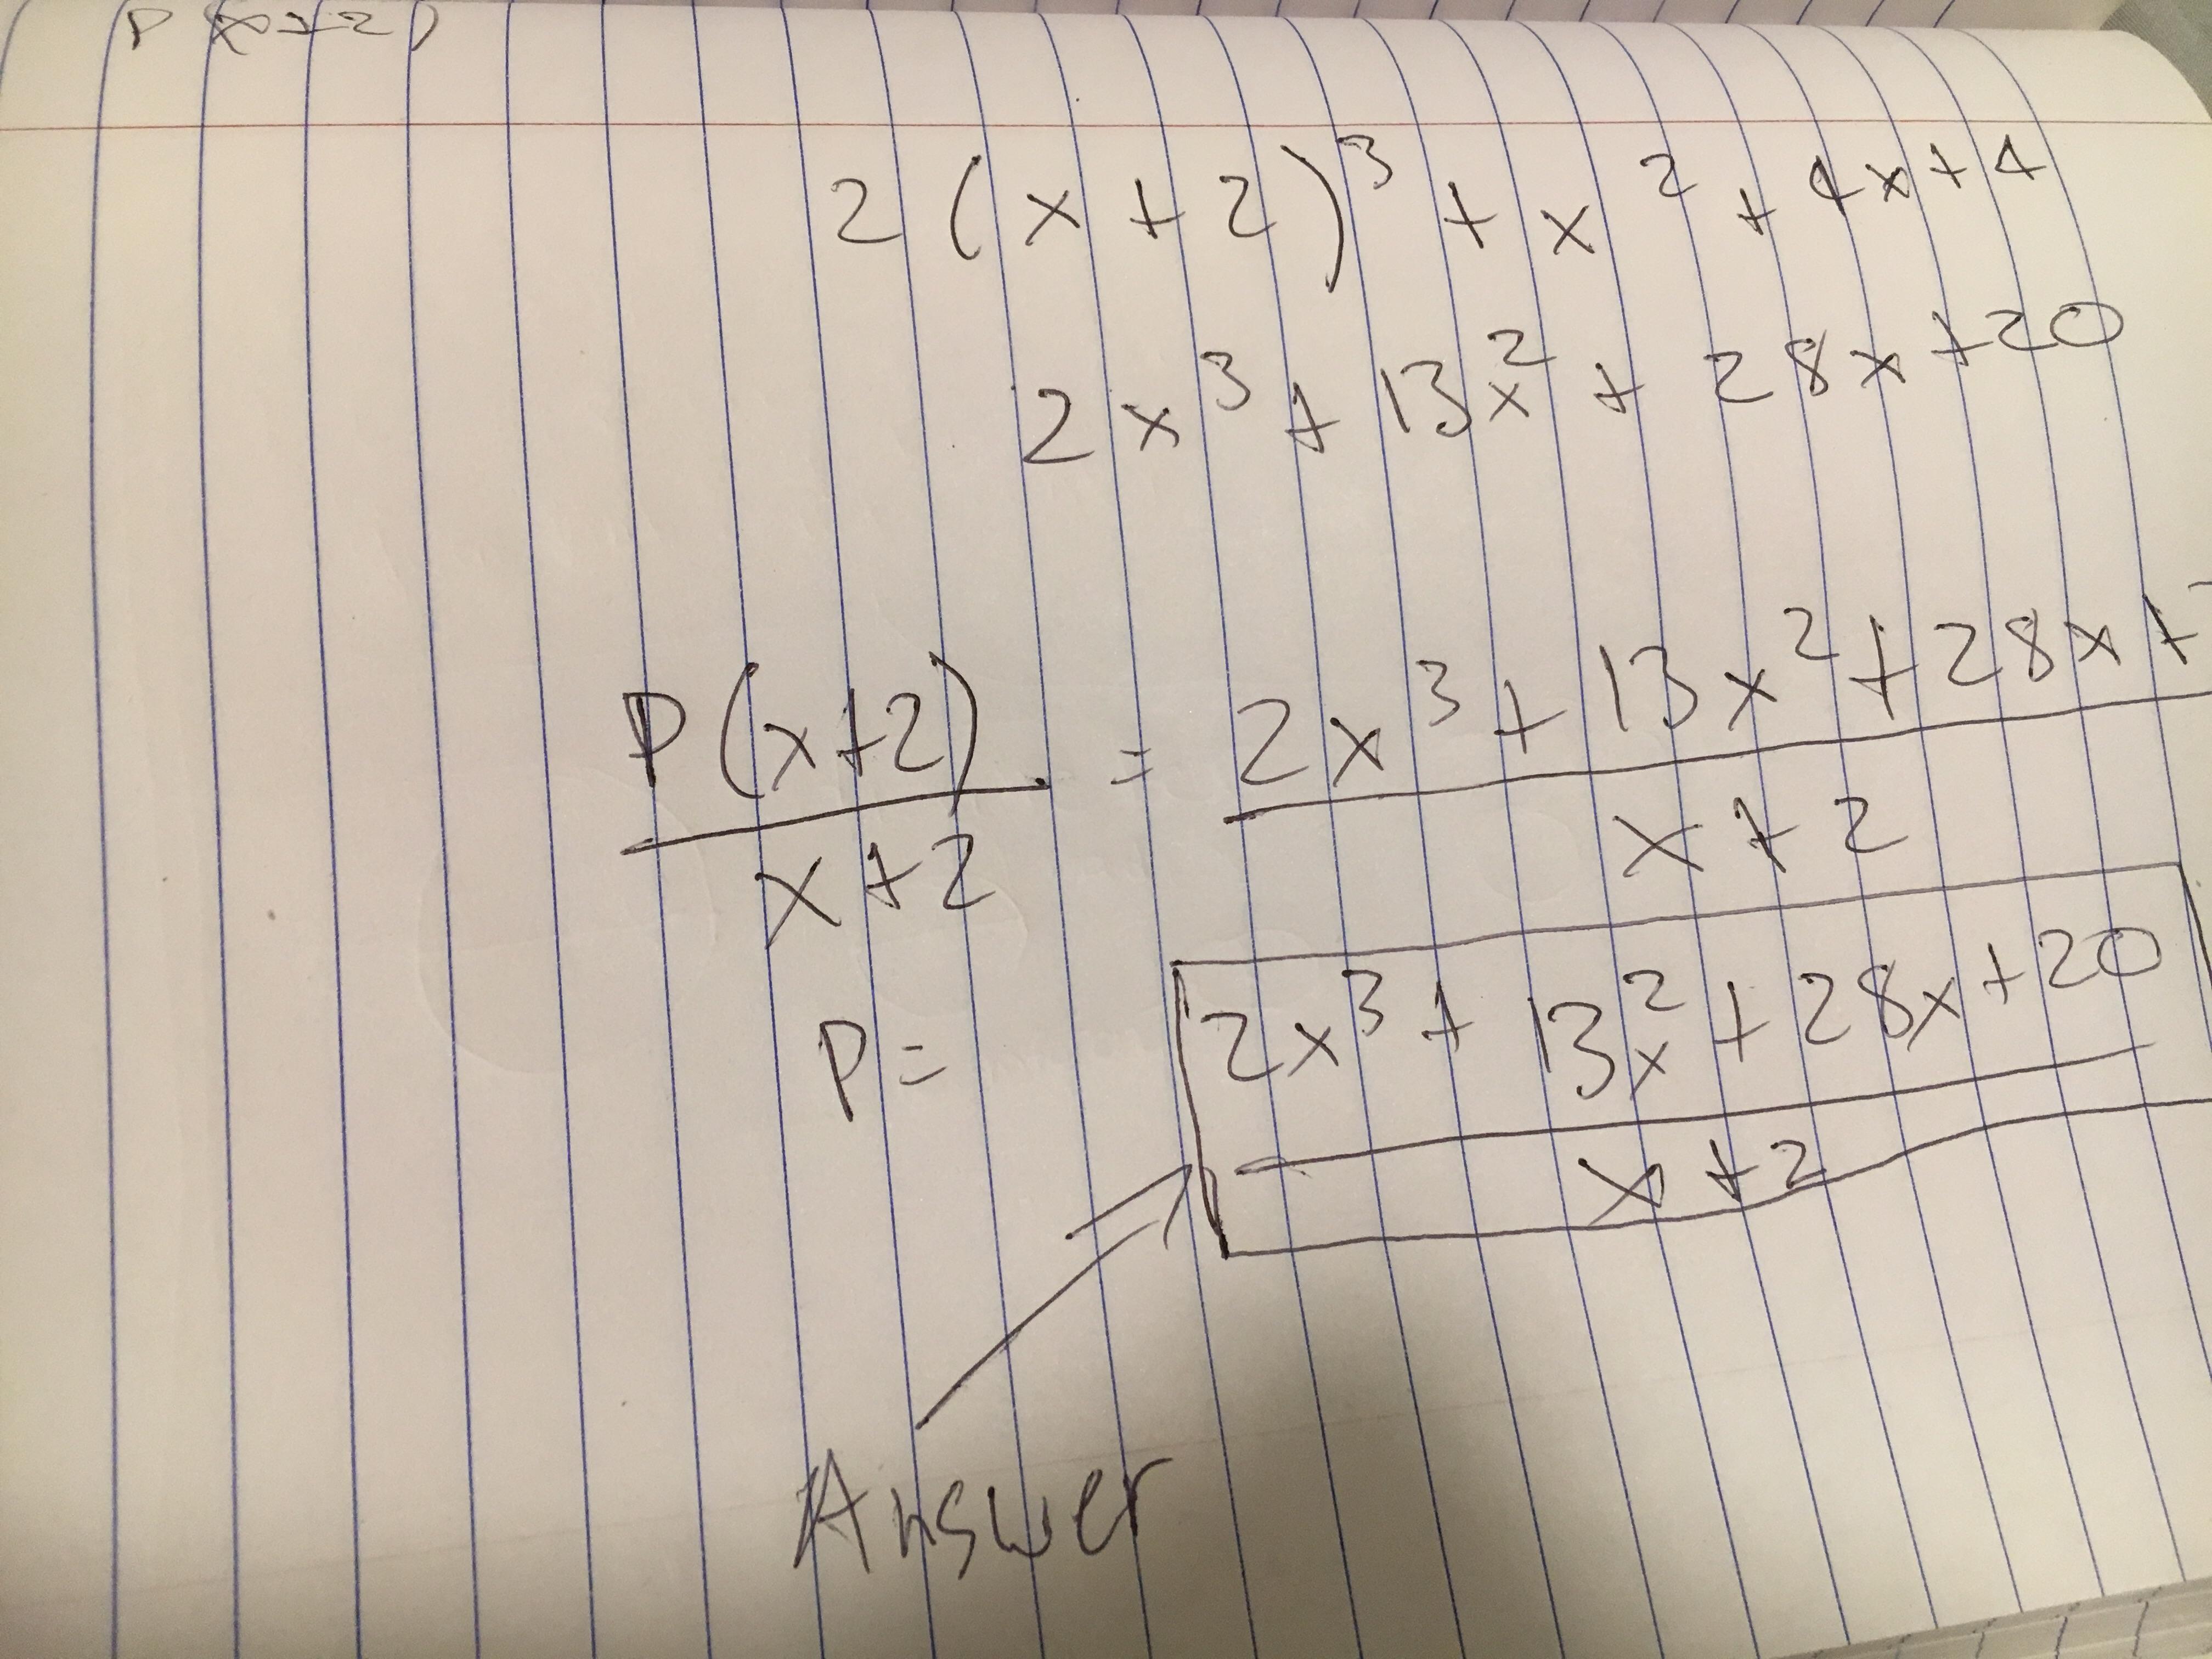 P(x+2)
2(x+2)³+x²+4x+4
2x³+13x²+28x+20
P(x+2) = 2x³+13x²+28x+
x+2 x+2
P= 2x³+13x²+28x+20
x+2
Answer